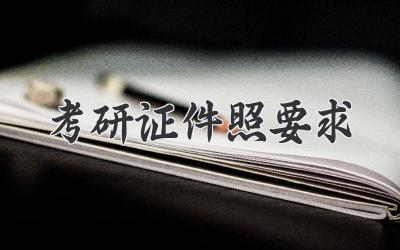 考研证件照要求